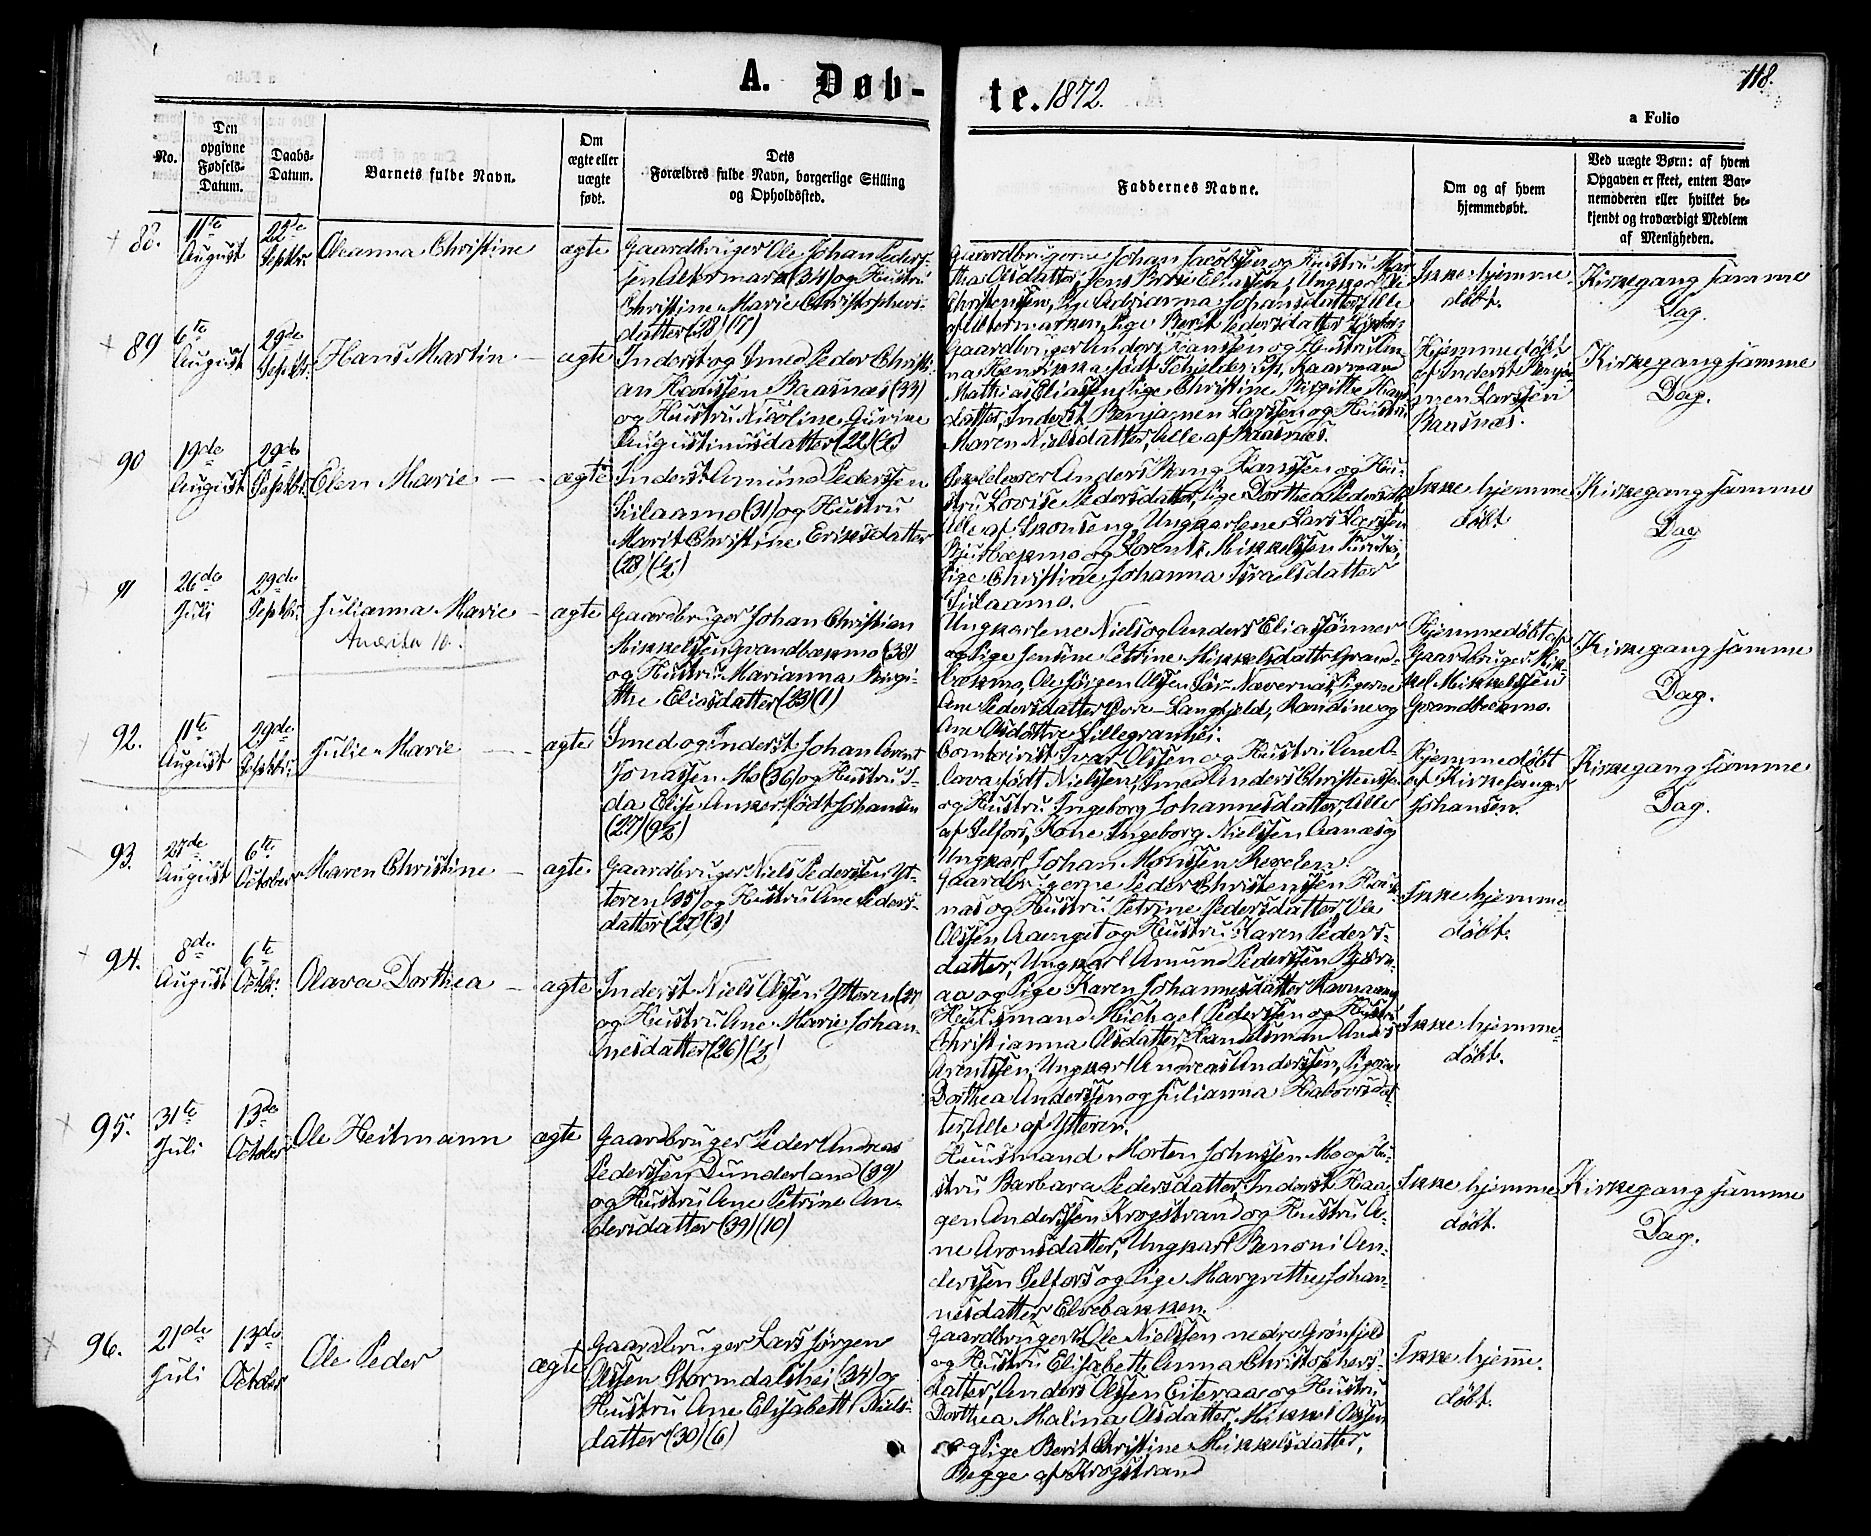 A. Døb-
te. 1872.
118.
a Folio
No.
Den opgivne Fødsels-Datum.
Daabs-Datum.
Barnets fulde Navn.
Om ægte eller uægte født.
Dets Forældres fulde Navn, borgerlige Stilling og Opholdssted.
Faddernes Navne.
Om og af hvem hjemmedøbt.
Ved uægte Børn: af hvem Opgaven er skeet, enten Barnemoderen eller hvilket bekjendt og troværdigt Medlem af Menigheden.
88.
11te August
22de Septbr.
Oleanna Christine
ægte
Gaardbruger Ole Johan Peders-
sen Aakermark (34) og Hustru
Christine Marie Christophers-
datter (28) (7)
Gaardbrugerne Johan Jacobssen og Hustru Mar-
tha Olsdatter, Jens Eliassen, Ungkarl
Christenssen, Pige Adrianna Johansdatter, Alle
Pige Berit Pedersdatter
Ikke hjemme
døbt.
Kirkegang samme
Dag.
89
6te August
29de Septbr.
Hans Martin
ægte
Inderst og Smed Peder Christi-
an Hanssen Baasnæs (33)
og Hustru Nicoline Gurine
Augustinusdatter (22)
Gaardbruger Anders Hanssen og Hustru An-
na Henrikka født Schjelderup, Kaarmand
Mathias Eliassen, Pige Christine Birgitte Hans-
datter, Inderst Benjamen Larssen og Hustru
Maren Nielsdatter, Alle af Baasnæs.
Hjemmedøbt
af Inderst Benja-
men Larssen
Baasnæs.
Kirkegang samme
Dag.
90
19de August
29de Septbr.
Elen Marie
ægte
Inderst Amund Pederssen
Sislaamo (31) og Hustru
Marit Christine Eriksdatter
(28) (½)
Anders Hanssen og Hu-
stru Lovise Pedersdatter, Pige Dorthea Pedersdtr
Alle af Skonseng, Ungkarlene Lars Larssen
og Lorents Mikkelssen
Pige Christine Johanna Israelsdatter
Sislaamo.
Ikke hjemme
døbt
Kirkegang samme
Dag
91
26de Juli
29de Septbr.
Julianna Marie
Amerika 10.
ægte
Gaardbruger Johan Christian
Mikkelssen Grandbækmo (38)
og Hustru Marianna Birgi-
tte Eliasdatter (23) (1)
Ungkarlene Niels og Anders Eliassønner
og Pige Jensine Petrine Mikkelsdatter Grand-
bækmo, Ole Jørgen Olssen Nævernæs, Pigerne
Ane Pedersdatter Langfjeld, Randine og
Ane Olsdøttre Lillegranhei.
Hjemmedøbt af
Gaardbruger Mik-
kel Mikkelssen
Grandbækmo.
Kirkegang samme
Dag.
92.
11te August
29de Septbr.
Julie Marie
ægte
Smed og Inderst Johan Arent
Jonassen Mo (36) og Hustru I-
da Elise Anker født Johansen
(27) (9½)
Ivar Olssen og Hustru Ane O-
lava født Nielssen, Smed Anders Christenssen
og Hustru Ingeborg Johannesdatter, Alle
af Selfors, Kone Ingeborg Nielssen Aanæs og
Ungkarl Johan Monssen
Hjemmedøbt
af Kirkesanger
Johansen.
Kirkegang samme
Dag.
93.
27de August
6te October
Maren Christine
ægte
Gaardbruger Niels Pederssen Yt-
teren (35) og Hustru Ane Peders-
datter (22) (3)
Gaardbrugerne Peder Christenssen
næs og Hustru Petrine Pedersdatter, Ole
Olssen Aaengit og Hustru Karen Peders-
datter, Ungkarl Amund Pederssen Bjørn-
aa og Pige Karen Johannesdatter
Ikke hjemme-
døbt.
94.
8de August
6te Octbr.
Olava Dorthea
ægte
Inderst Niels Olssen Ytteren
og Hustru Ane Marie Johan-
nesdatter (26) (½)
Huusmand Michael Pederssen og Hustru
Christianna Olsdatter, Handelsmand
Arentssen, Ungkarl Andreas Anderssen, Pigerne
Dorthea Anderssen og Julianna Haavorsdat-
ter, Alle af Ytteren.
Ikke hjemme-
døbt.
95.
31te Juli
13de October
Ole Heitmann
ægte
Gaardbruger Peder Andreas
Pederssen, Dunderland (39)
og Hustru Ane Petrine An-
dersdatter (39) (10)
Huusmand Morten Johnssen Mo og Hu-
stru Barbara Pedersdatter, Inderst Haa-
gen Anderssen Krogstrand og Hustru A-
ne Aronsdatter, Ungkarl Benoni An-
derssen Selfors og Pige Margrethe Johan-
nesdatter Elvebakken.
Ikke hjemme
døbt.
Kirkegang samme
Dag.
96.
21de Juli
13de October
Ole Peder
ægte
Gaardbruger Lars Jørgen
Olssen Stormdalshei (34) og
Hustru Ane Elisabeth Niels-
datter (30) (6)
Gaardbrugerne Ole Nielssen nedre Grønfjeld
og Hustru Elisabeth Anna Christophers-
datter, Anders Olssen Eiteraa og Hustru
Dorthea Malina Olsdatter, Mikkel Olssen
og Pige Berit Christine Mikkelsdatter,
Begge af Krogstrand
Ikke hjemme.
døbt.